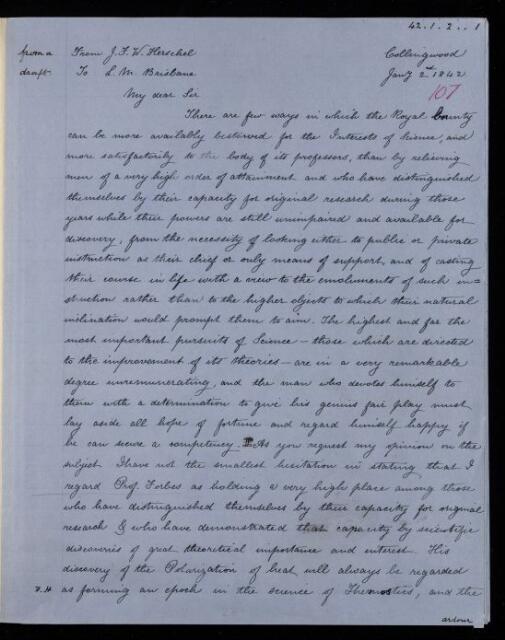 42.1.2..1
from a From J. F. W. Herschel Collingwood
draft. To S. M. Brisbane Jany 2nd 1842
107
My dear Sir
There are few ways in which the Royal Bounty
can be more availably bestowed for the Interests of Science, and
more satisfactorily to the body of its professors, than by relieving
men of a very high order of attainment and who have distinguished
themselves by their capacity for original research during those
years while their powers are still unimpaired and available for
discovery, from the necessity of looking either to public or private
instruction as their chief or only means of support, and of casting
their course in life with a view to the emoluments of such in=
struction rather than to the higher objects to which their natural
inclination would prompt them to aim. The highest and far the
most important pursuits of Science — those which are directed
to the improvement of its theories — are in a very remarkable
degree unremunerating, and the man who devotes himself to
them with a determination to give his genius fair play must
lay aside all hope of fortune and regard himself happy if
he can secure a competency. As you request my opinion on the
subject I have not the smallest hesitation in stating that I
regard Prof. Forbes as holding a very high place among those
who have distinguished themselves by their capacity for original
research & who have demonstrated that capacity by scientific
discoveries of great theoretical importance and interest. His
discovery of the Polarization of heat will always be regarded
as forming an epoch in the science of Thermotics, and the
ardour